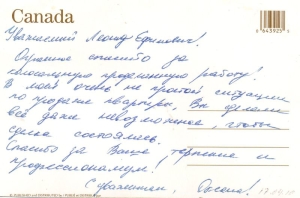 Canada
6 43925
Уважаемый Леонид Ефимович!
Огромное спасибо за
проделанную работу!
В моей очень не простой ситуации
по продаже квартиры, Вы сделали
всё даже невозможное, чтобы
сделка состоялась.
Спасибо за Ваше терпение и
профессионализм!
С уважением, Оксана!